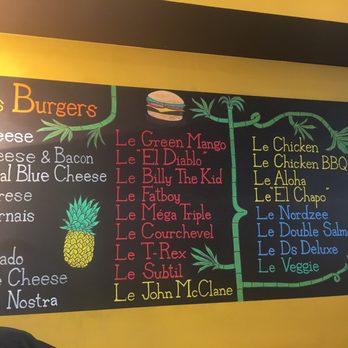 s Burgers
eese
eese & Bacon
al Blue Cheese
rese
rnais
ado
e Cheese
Nostra
Le Green Mango
Le "El Diablo"
Le Billy The Kid
Le Fatboy
Le Méga Triple
Le Courchevel
Le T-Rex
Le Subtil
Le John McClane
Le Chicken
Le Chicken BBQ
Le Aloha
Le "El Chapo"
Le Nordzee
Le Double Salm
Le Ds Deluxe
Le Veggie